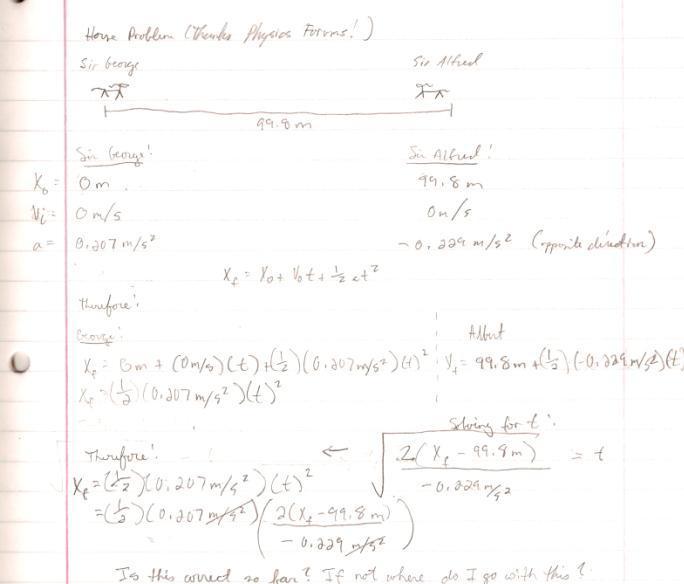 Horse Problem (Thanks Physics Forums!)
Sir George Sir Alfred
99.8 m
Sir George: Sir Alfred:
X₀ = 0m 99.8 m
Vi = 0 m/s 0m/s
a = 0.207 m/s² -0.229 m/s² (opposite direction)
X_f = X₀ + V₀t + ½at²
Therefore:
George: Albert
X_f = 0m + (0m/s)(t) + (½)(0.207 m/s²)(t)² X_f = 99.8m + (½)(-0.229 m/s²)(t)
X_f = (½)(0.207 m/s²)(t)²
Solving for t:
Therefore: ← √(2(X_f - 99.8m) / -0.229 m/s²) = t
X_f = (½)(0.207 m/s²)(t)²
= (½)(0.207 m/s²)(2(X_f - 99.8m) / -0.229 m/s²)
Is this correct so far? If not where do I go with this?